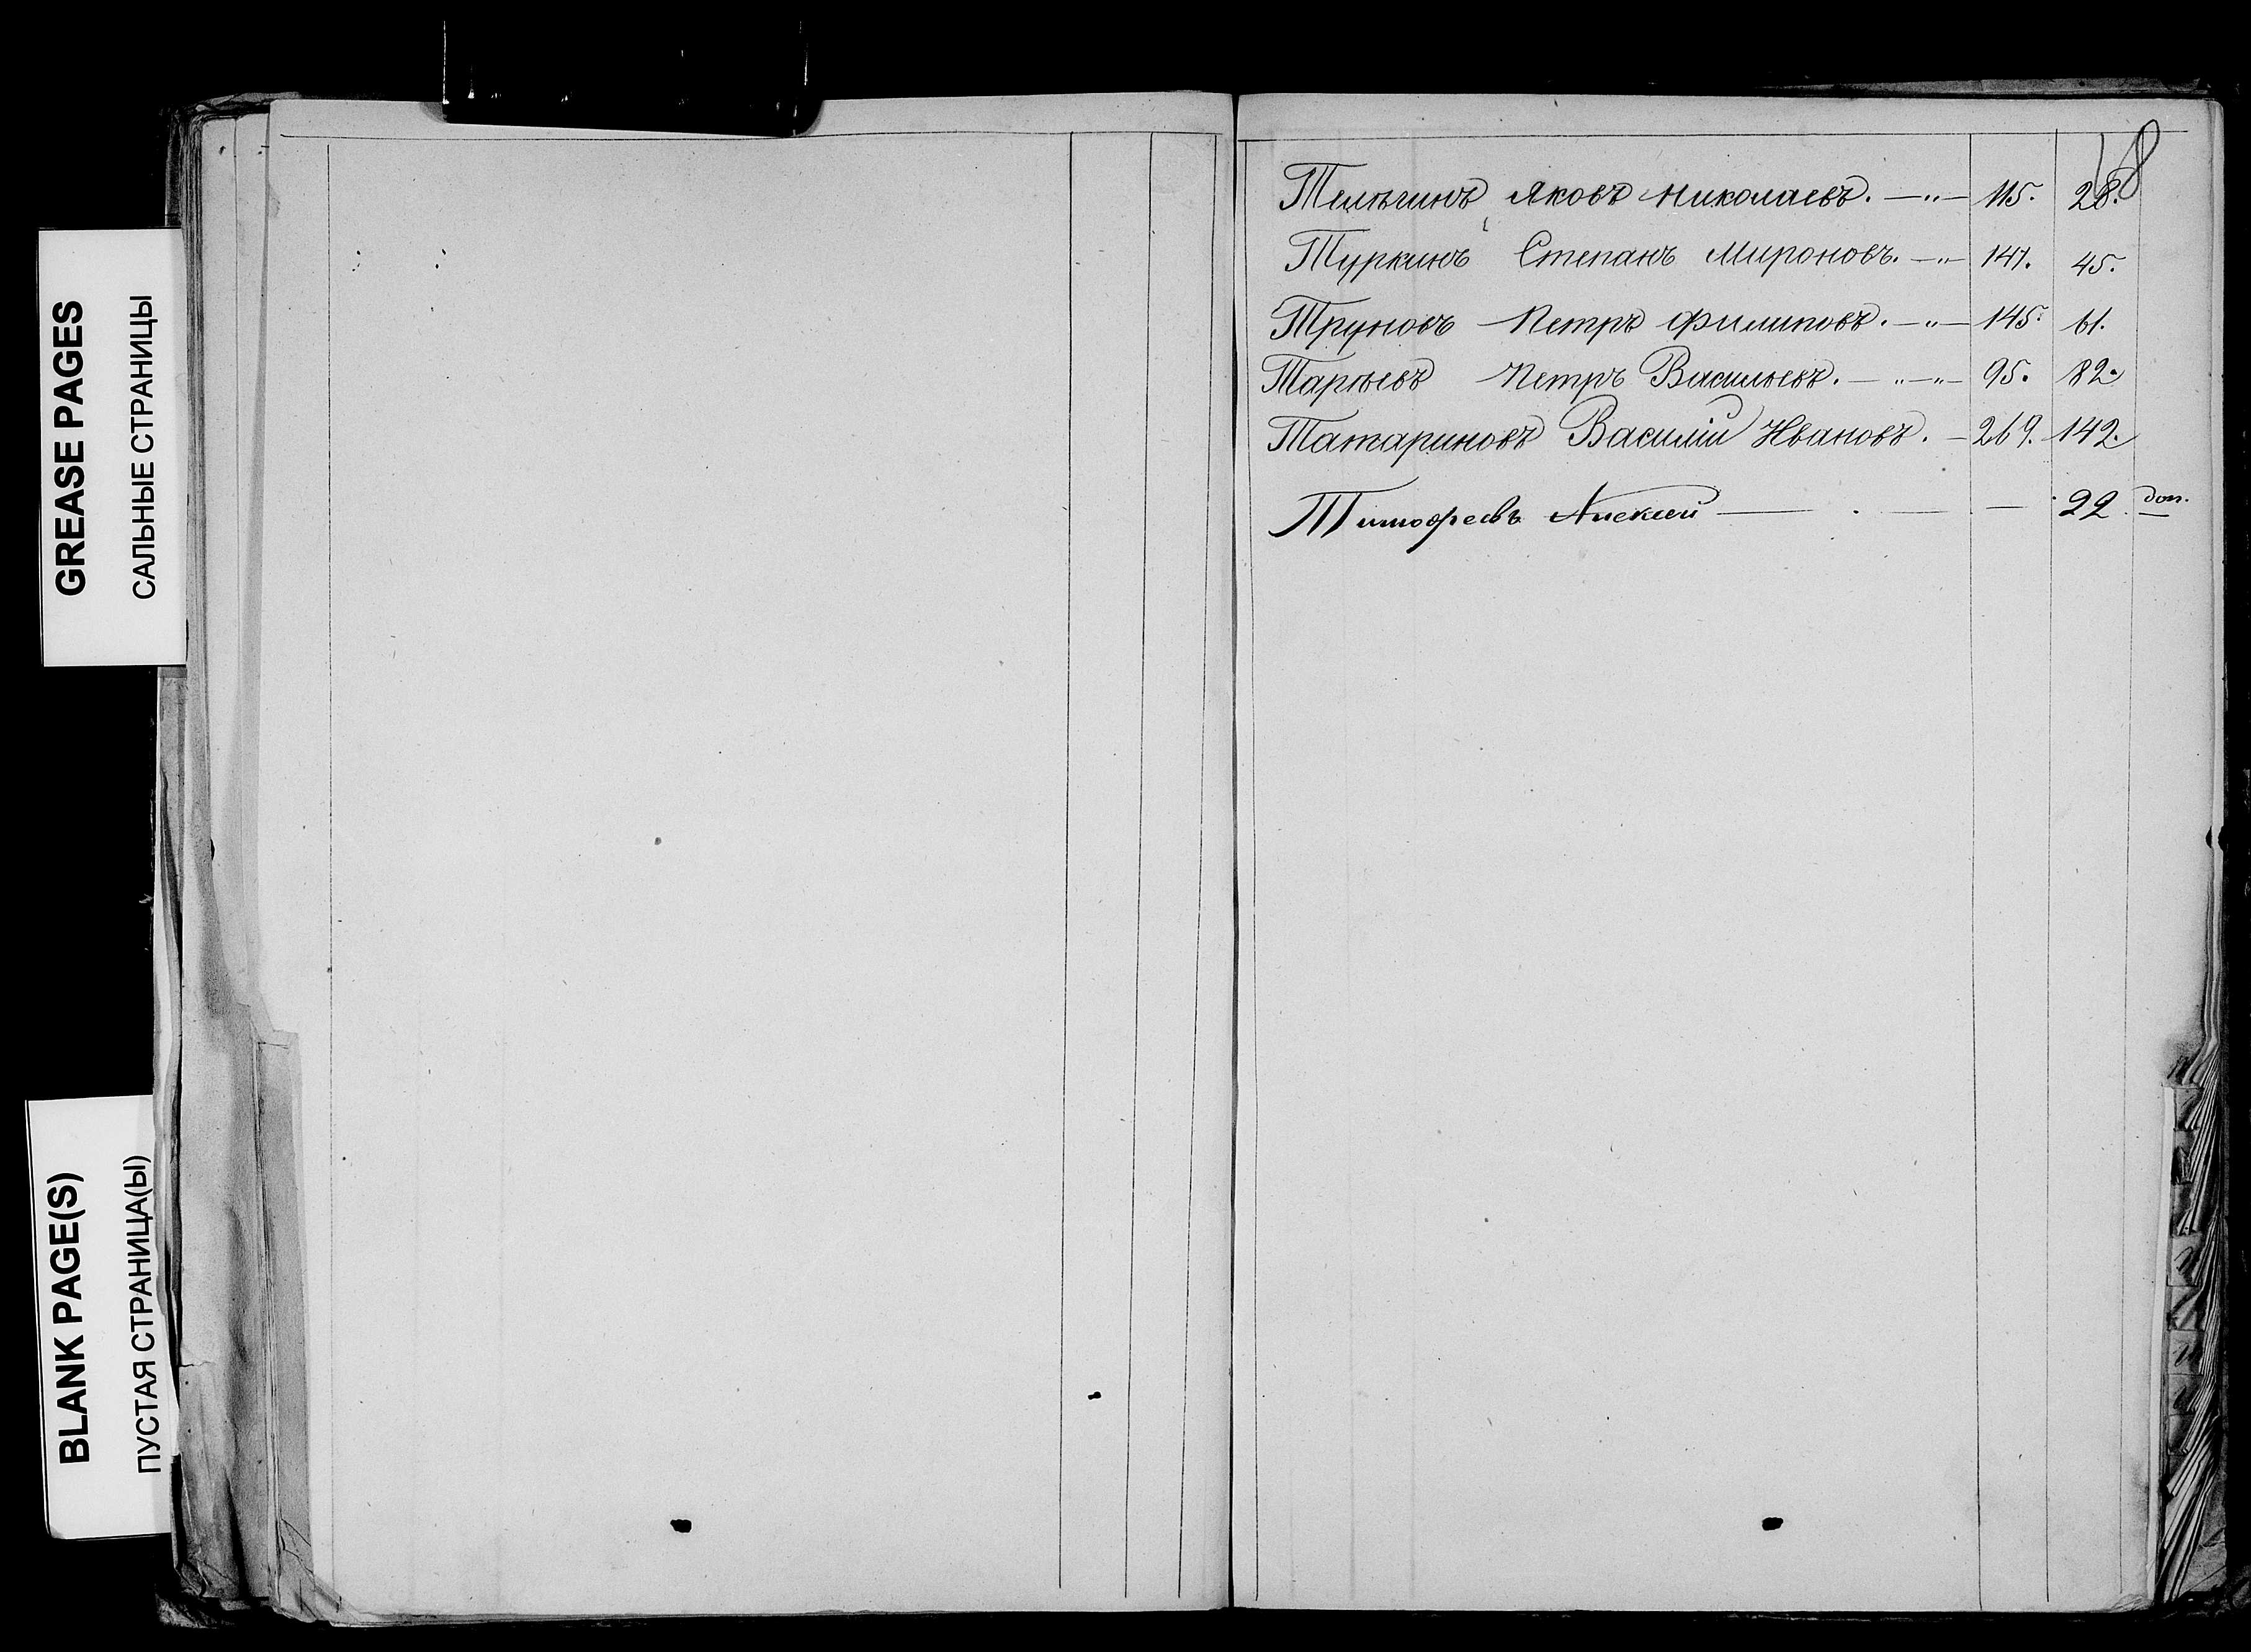 GREASE PAGES
САЛЬНЫЕ СТРАНИЦЫ
BLANK PAGE(S)
ПУСТАЯ СТРАНИЦА(Ы)
18
Телѣгинъ Яковъ Николаевъ. —„— 115. 28.
Туркинъ Степанъ Мироновъ. —„— 141. 45.
Труновъ Петръ Филиповъ. —„— 145. 61.
Петръ Васильевъ. —„—„— 95. 82.
Татариновъ Василій Ивановъ. — 269. 142.
Тимофеевъ Алексей — — — 22. доп.